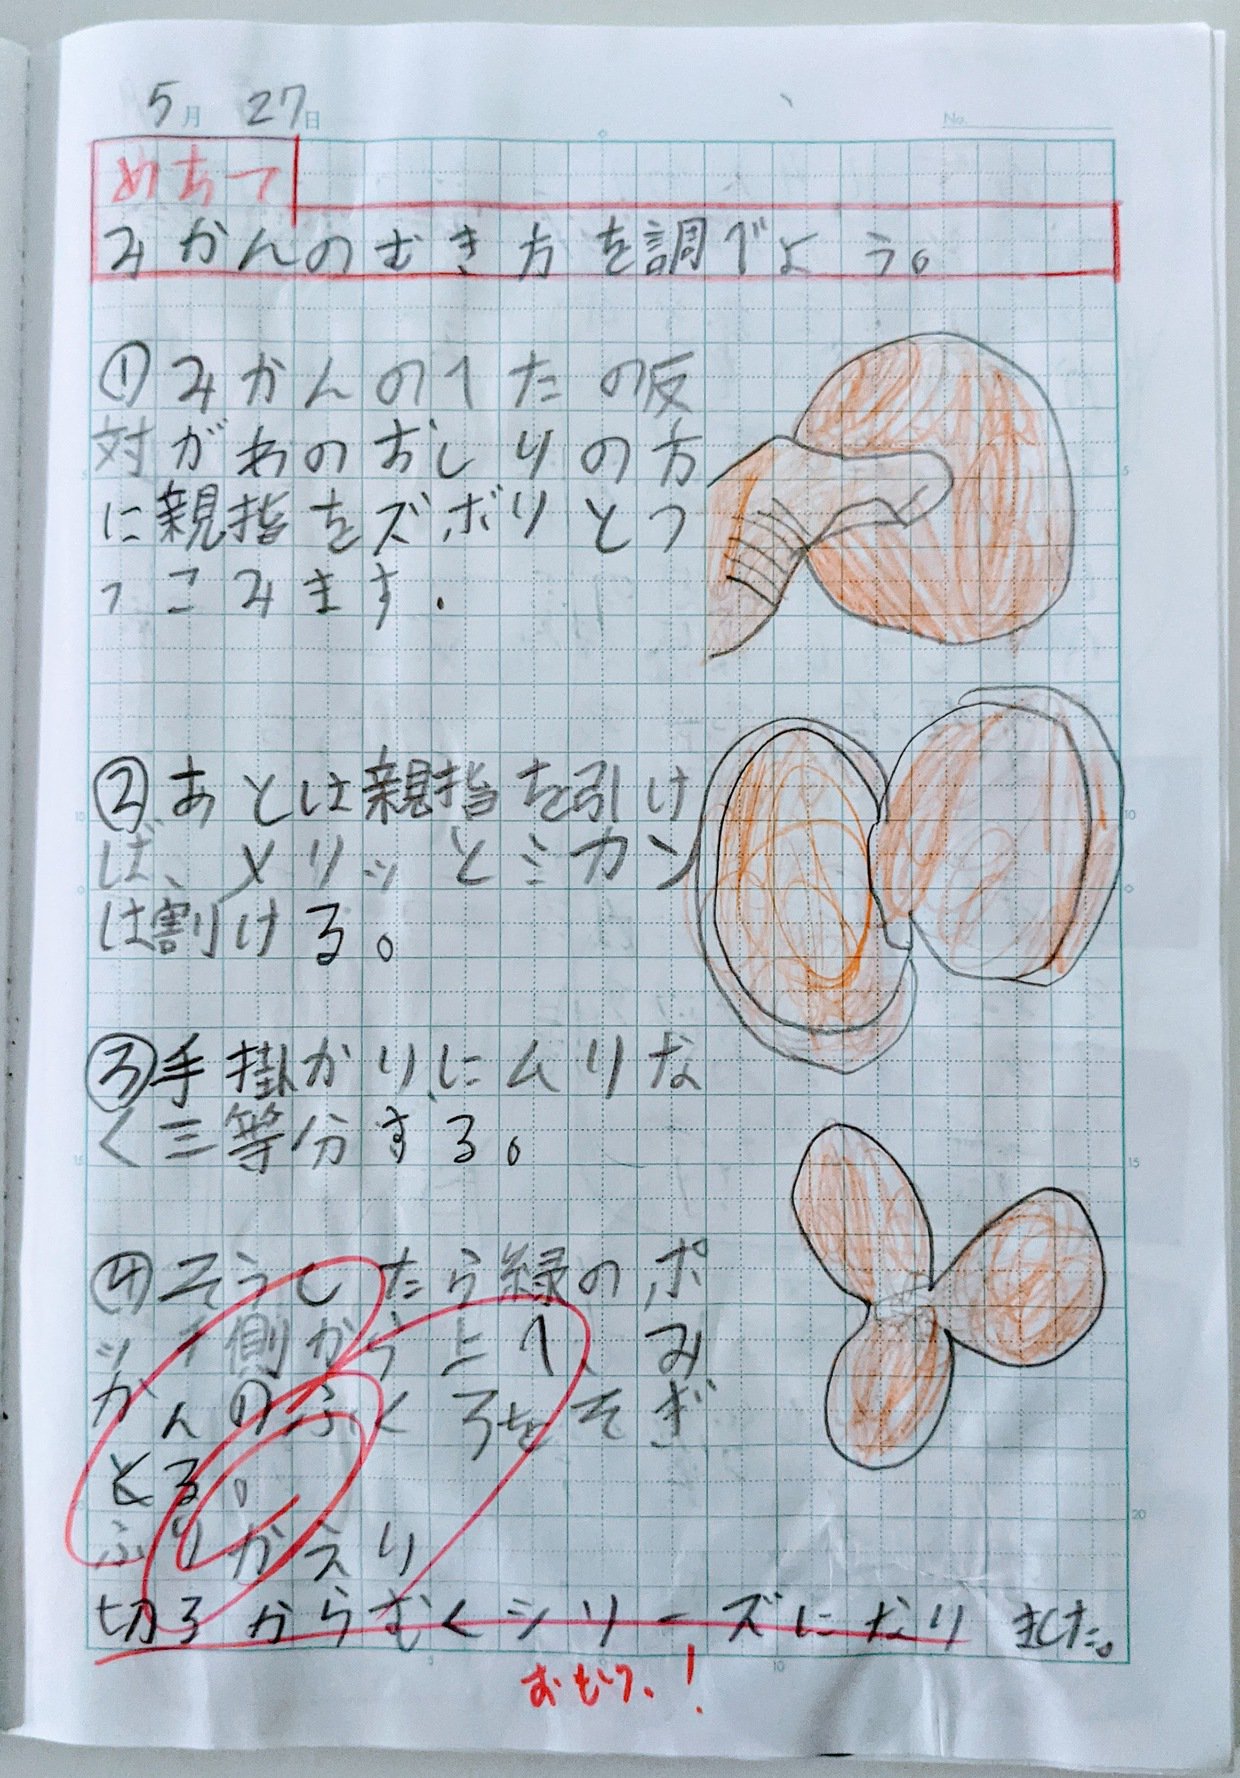 5月 27日
No.
めあて
みかんのむき方を調べよう。
①みかんのへたの反
対がわのおしりの方
に親指をズボリとつ
っこみます.
②あとは親指を引け
ば、メリッとミカン
は割ける。
③手掛かりにムリな
く三等分する。
④そうしたら緑のポ
ッチ側から上へ、み
かんのふくろをそぎ
とる。
ふりかえり
切ろからむくシリーズになりました。
5
10
15
20